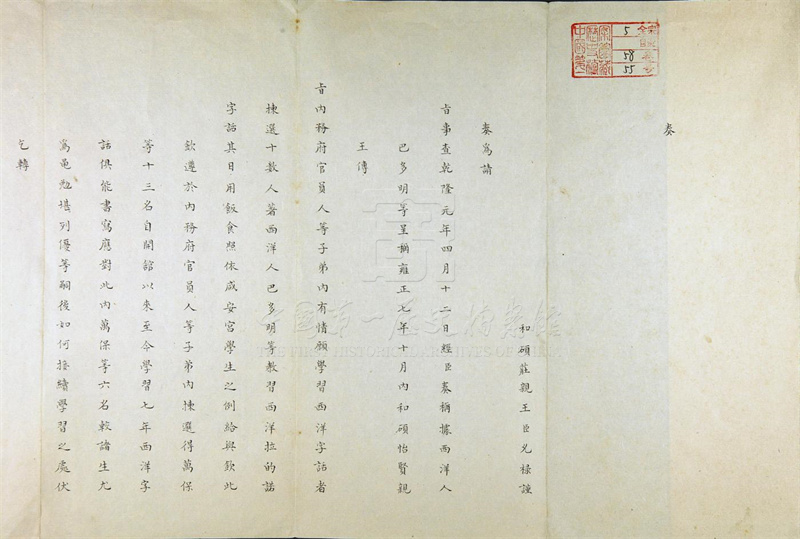 5
58
55
奏
和碩莊親王臣允祿謹
奏爲請
旨事查乾隆元年四月十二日經臣奏稱據西洋人
巴多明等呈稱雍正七年十月內和碩怡賢親
王傳
旨內務府官員人等子弟內有情願學習西洋字話者
揀選十數人著西洋人巴多明等教習西洋拉的諾
字話其日用飯食照依咸安宮學生之例給與欽此
欽遵於內務府官員人等子弟內揀選得萬保
等十三名自開館以來至今學習七年西洋字
話俱能書寫應對此內萬保等六名較諸生尤
爲黽勉堪列優等嗣後如何接續學習之處伏
乞轉
中國第一歷史檔案館
THE FIRST HISTORICAL ARCHIVES OF CHINA